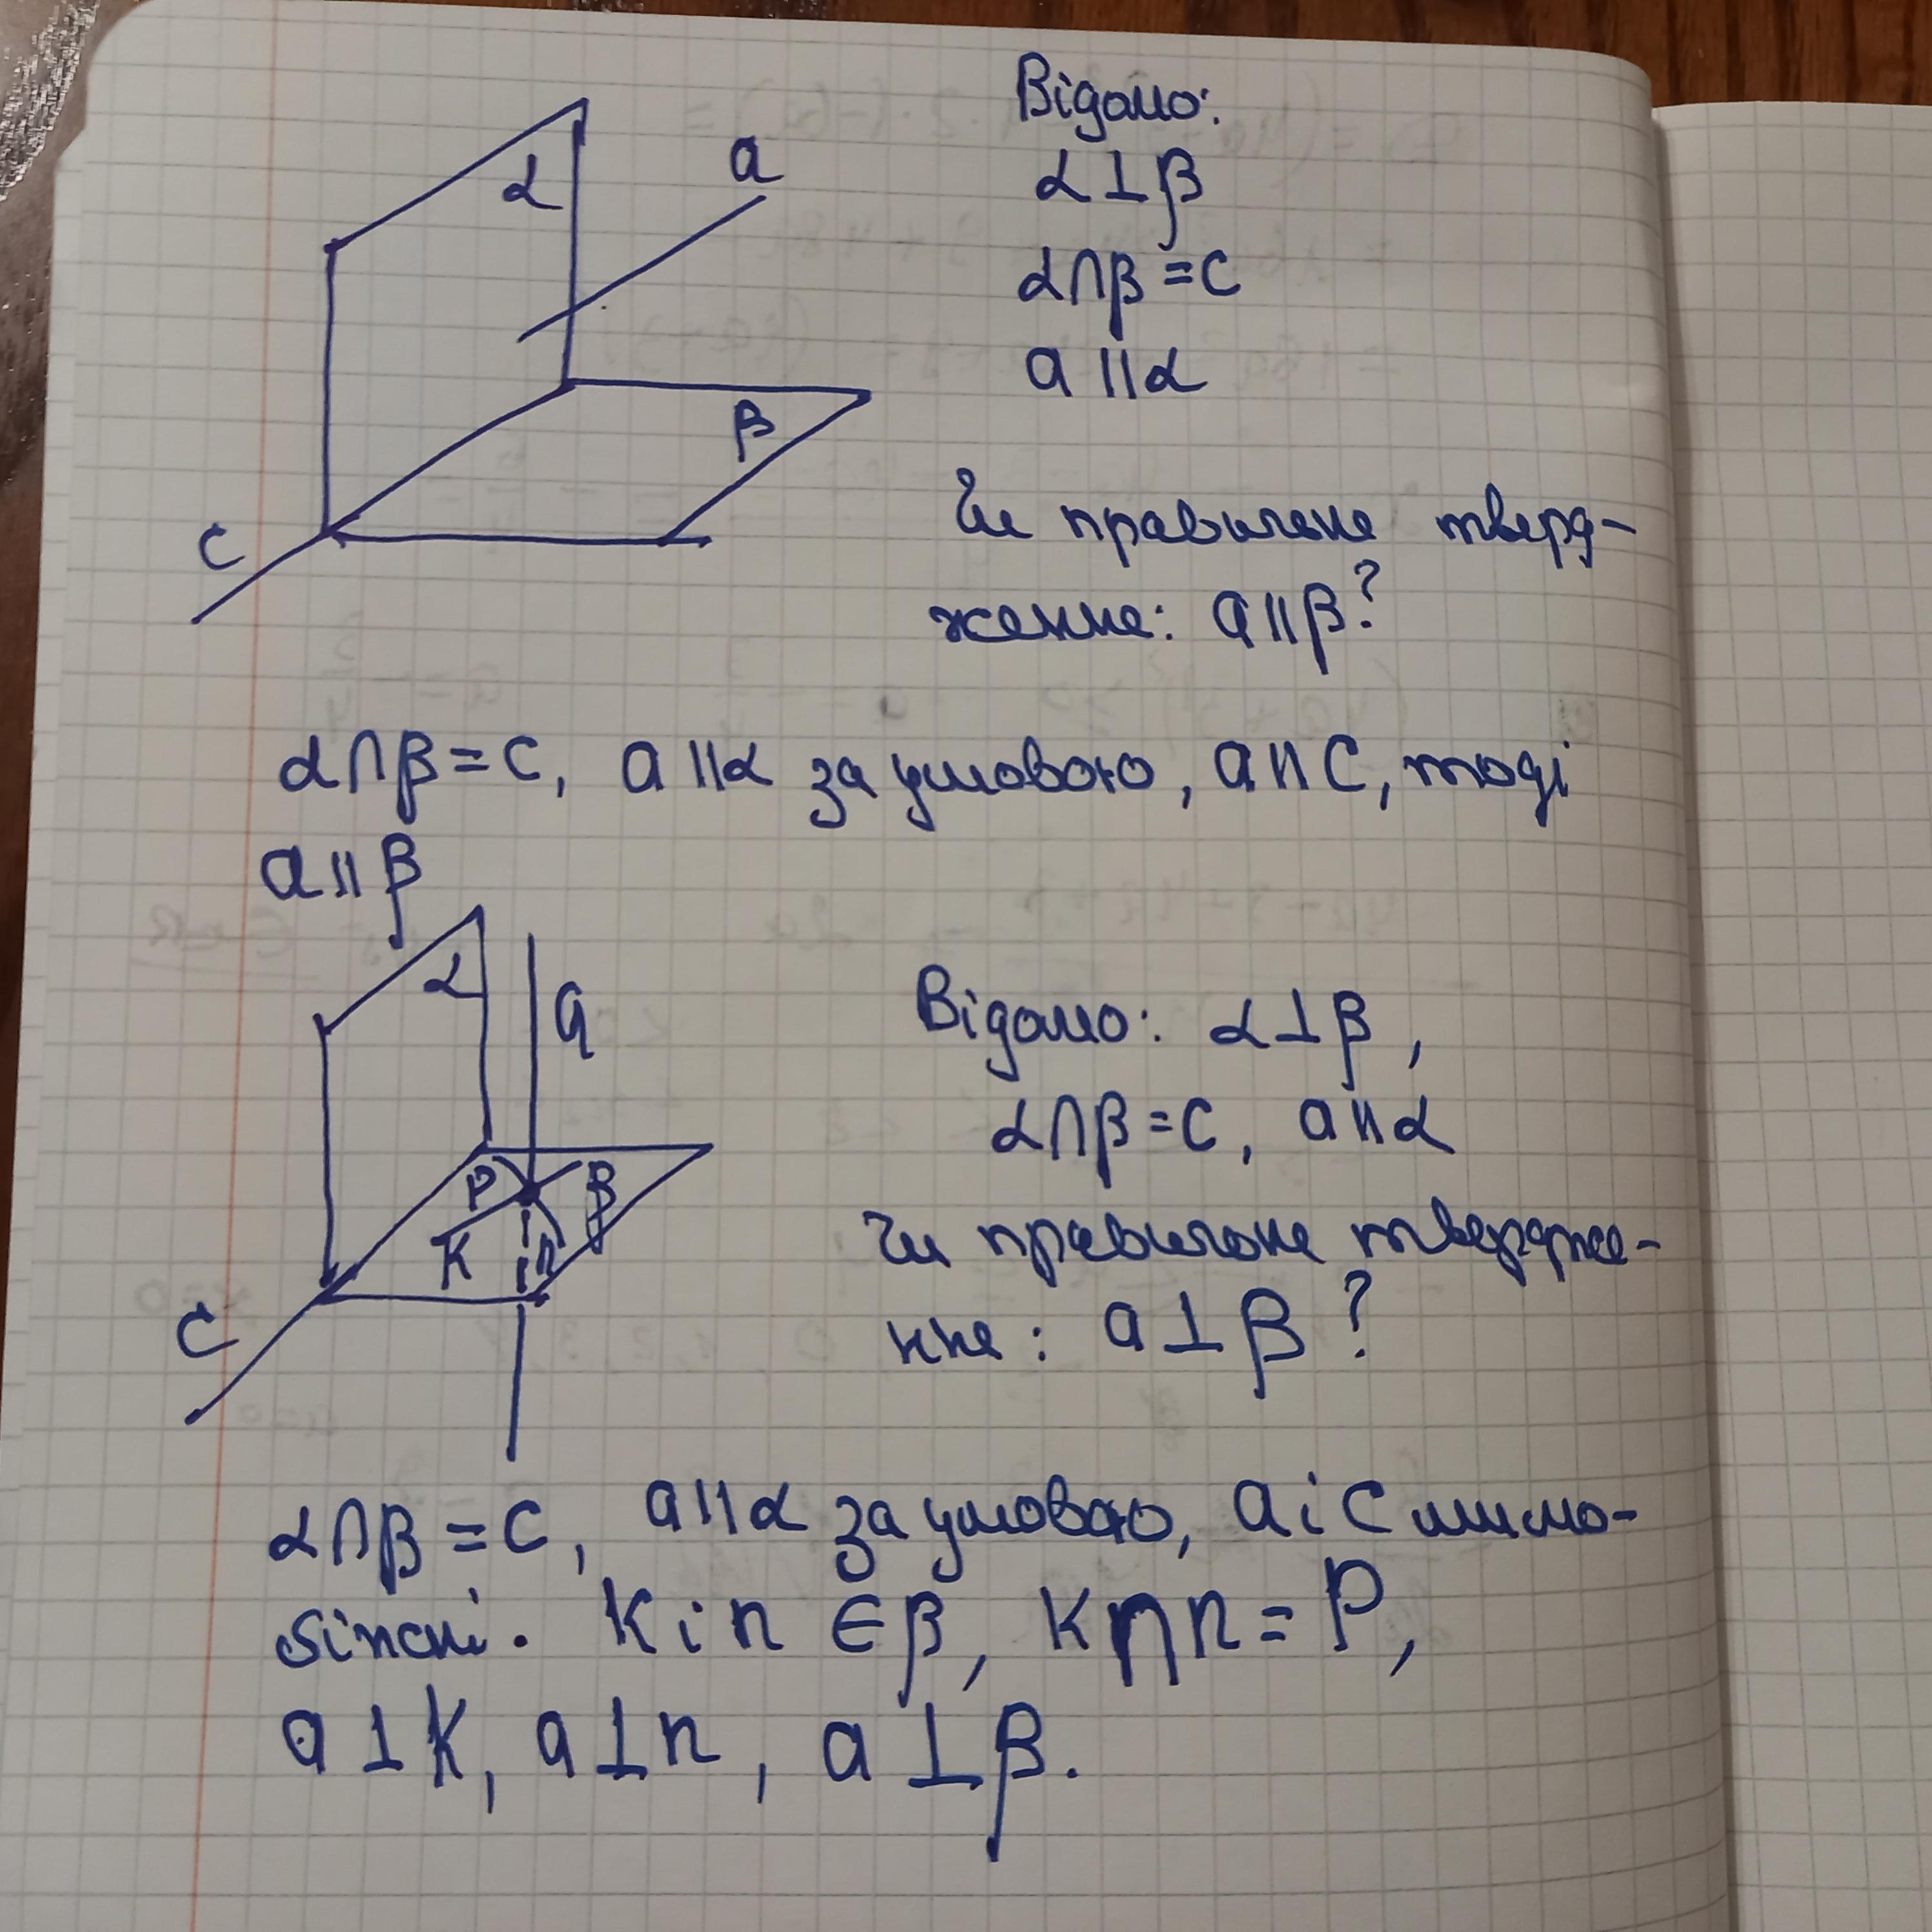 Відомо:
α
a
α⊥β
α∩β=c
a||α
β
c
Чи правильне тверд-
ження: a||β?
α∩β=c, a||α за умовою, a||c, тоді
a||β
α
a
Відомо: α⊥β,
α∩β=c, a||α
P
β
K
n
c
Чи правильне твердже-
ння: a⊥β?
α∩β=c, a||α за умовою, a i c мимо-
біжні. K i n ∈β, K∩n=P,
a⊥K, a⊥n, a⊥β.